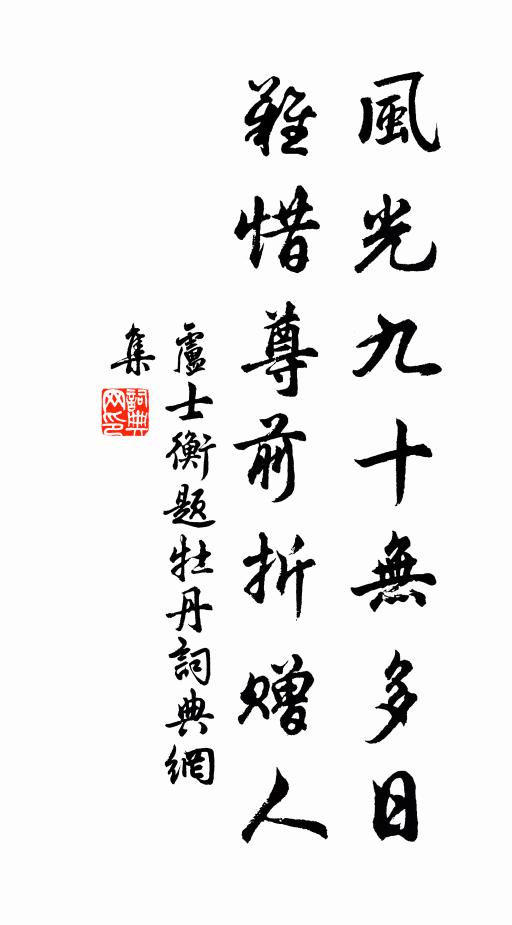 風光九十無多日
難惜尊前折贈人
盧士衡題牡丹詞典網
集
詞典
网印